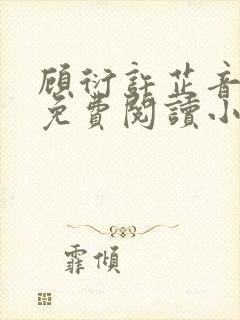 顾衍許芷音
免費閱讀小
霏傾